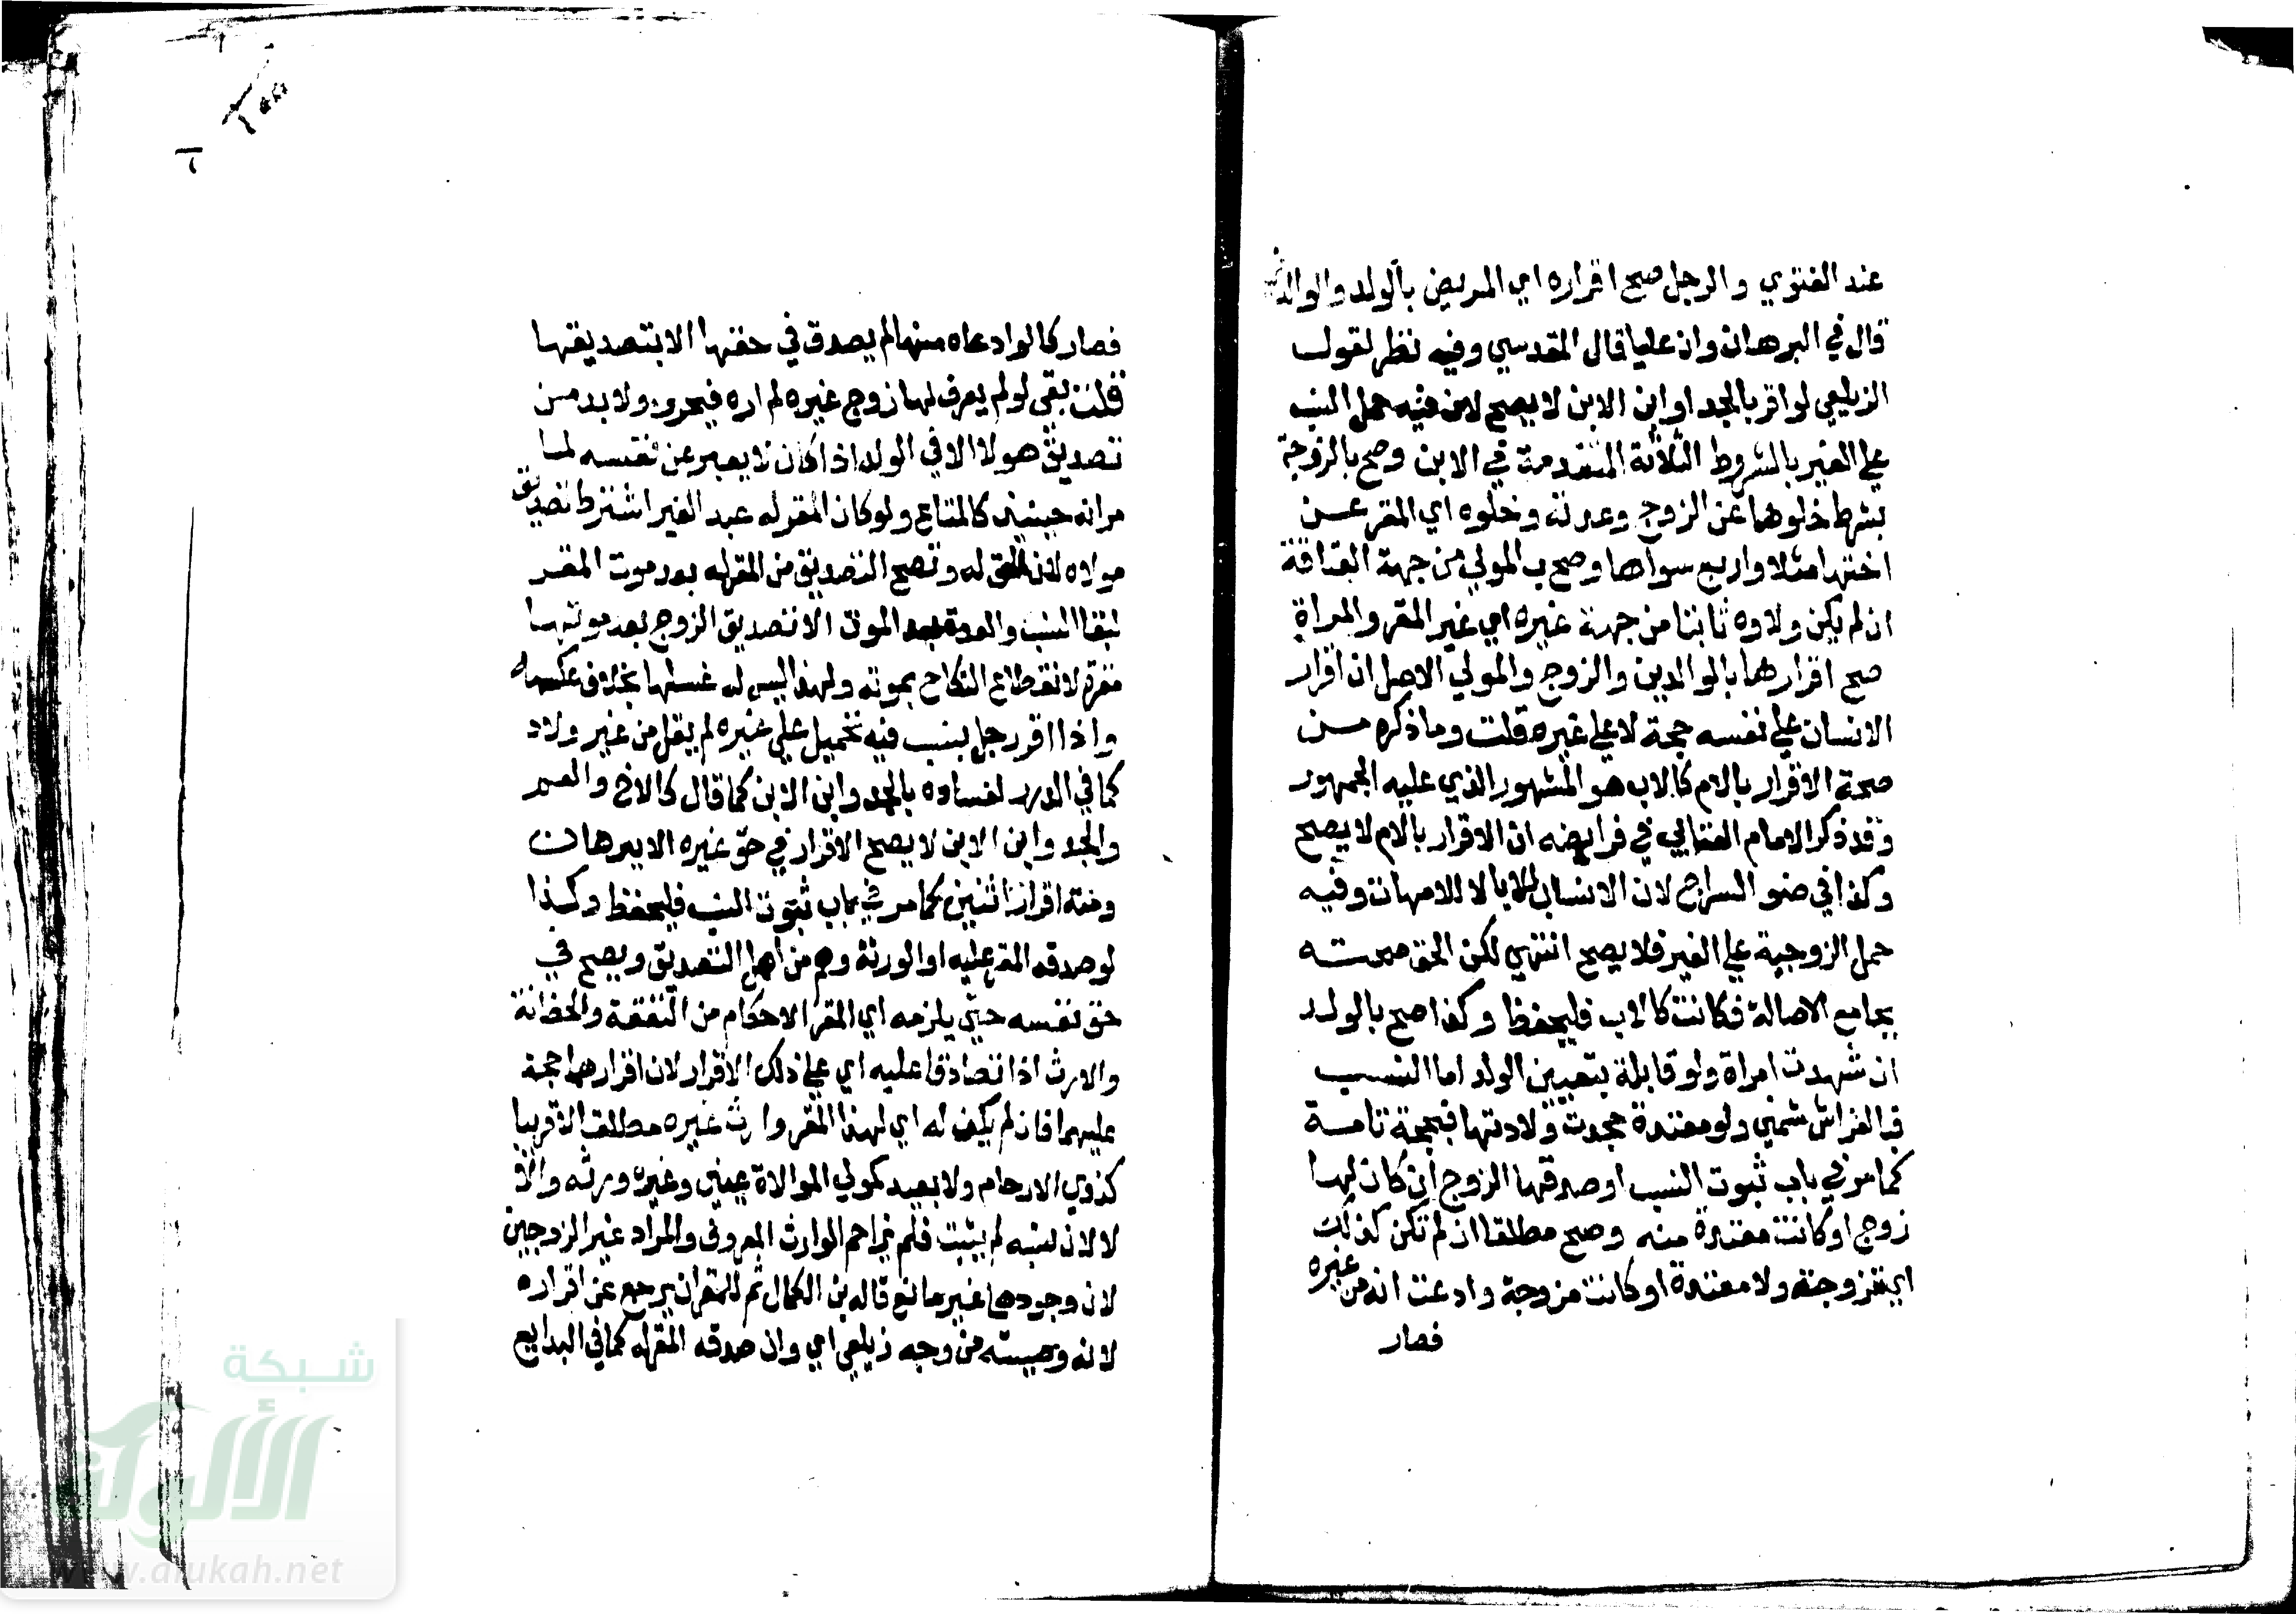 عند الفتوي والرجل صح اقراره اي المريض بالولد والوالدين
قال في البرهان وان عليا قال المقدسي وفيه نظر لقول
الزيلعي لو اقر بالجد او ابن الابن لا يصح لان فيه حمل النسب
علي الغير بالشروط الثلاثة المتقدمة في الابن وصح بالزوجة
بشرط خلوها عن الزوج وعدته وخلوه اي المقر عن
اختها مثلا واربع سواها وصح بالمولي من جهة العتاقة
ان لم يكن ولاوه ثابتا من جهة غيره اي غير المقر والمراة
صح اقرارها بالوالدين والزوج والمولي الاصل ان اقرار
الانسان علي نفسه حجة لا علي غيره قلت وما ذكره من
صحة الاقرار بالام كالاب هو المشهور الذي عليه الجمهور
وقد ذكر الامام العتابي في فرايضه ان الاقرار بالام لا يصح
وكذا في ضو السراج لان الانساب للابا لا للامهات وفيه
حمل الزوجية علي الغير فلا يصح انتهي لكن الحق صحته
بجامع الاصالة فكانت كالاب فليحفظ وكذا صح بالولد
ان شهدت امراة ولو قابلة بتعيين الولد اما النسب
فبالفراش شمني ولو معتدة جحدت ولادتها فبحجة تامة
كما مر في باب ثبوت النسب او صدقها الزوج ان كان لها
زوج او كانت معتدة منه وصح مطلقا ان لم تكن كذلك
اي مزوجة ولا معتدة او كانت مزوجة وادعت انه من غيره
فصار
٦
فصار كما لو ادعاه منها لم يصدق في حقها الا بتصديقها
قلت بقي لو لم يعرف لها زوج غيره لم اره فيحرر ولا بد من
تصديق هولا الا في الولد اذا كان لا يعبر عن نفسه لما
مر انه حينئذ كالمتاع ولو كان المقر له عبد الغير اشترط تصديق
مولاه لان الحق له وتصح التصديق من المقر له بعد موت المقر
لبقا النسب والعدة بعد الموت الا تصديق الزوج بعد موتها
مقرة لانقطاع النكاح بموته ولهذا ليس له غسلها بخلاف عكسه
واذا اقر رجل بنسب فيه تحميل علي غيره لم يقل من غير ولاد
كما في الدرر لفساده بالجد وابن الابن كما قال كالاخ والعم
والجد وابن الابن لا يصح الاقرار في حق غيره الا ببرهان
ومنه اقرار اثنين كما مر في باب ثبوت النسب فليحفظ وكذا
لو صدقه المقر عليه او الورثة وهم من اهل التصديق ويصح في
حق نفسه حتي يلزمه اي المقر الاحكام من النفقة والحضانة
والارث اذا تصادقا عليه اي علي ذلك الاقرار لان اقرارهما حجة
عليهما فان لم يكن له اي لهذا المقر وارث غيره مطلقا لا قريبا
كذوي الارحام ولا بعيد كمولي الموالاة عيني وغيره ورثه والا
لا لان نسبه لم يثبت فلم يزاحم الوارث المعروف والمراد غير الزوجين
لان وجودهما غير مانع قاله بن الكمال ثم للمقر ان يرجع عن اقراره
لانه وصيته من وجه زيلعي اي وان صدقه المقر له كما في البدايع
شبكة
الألوكة
www.alukah.net